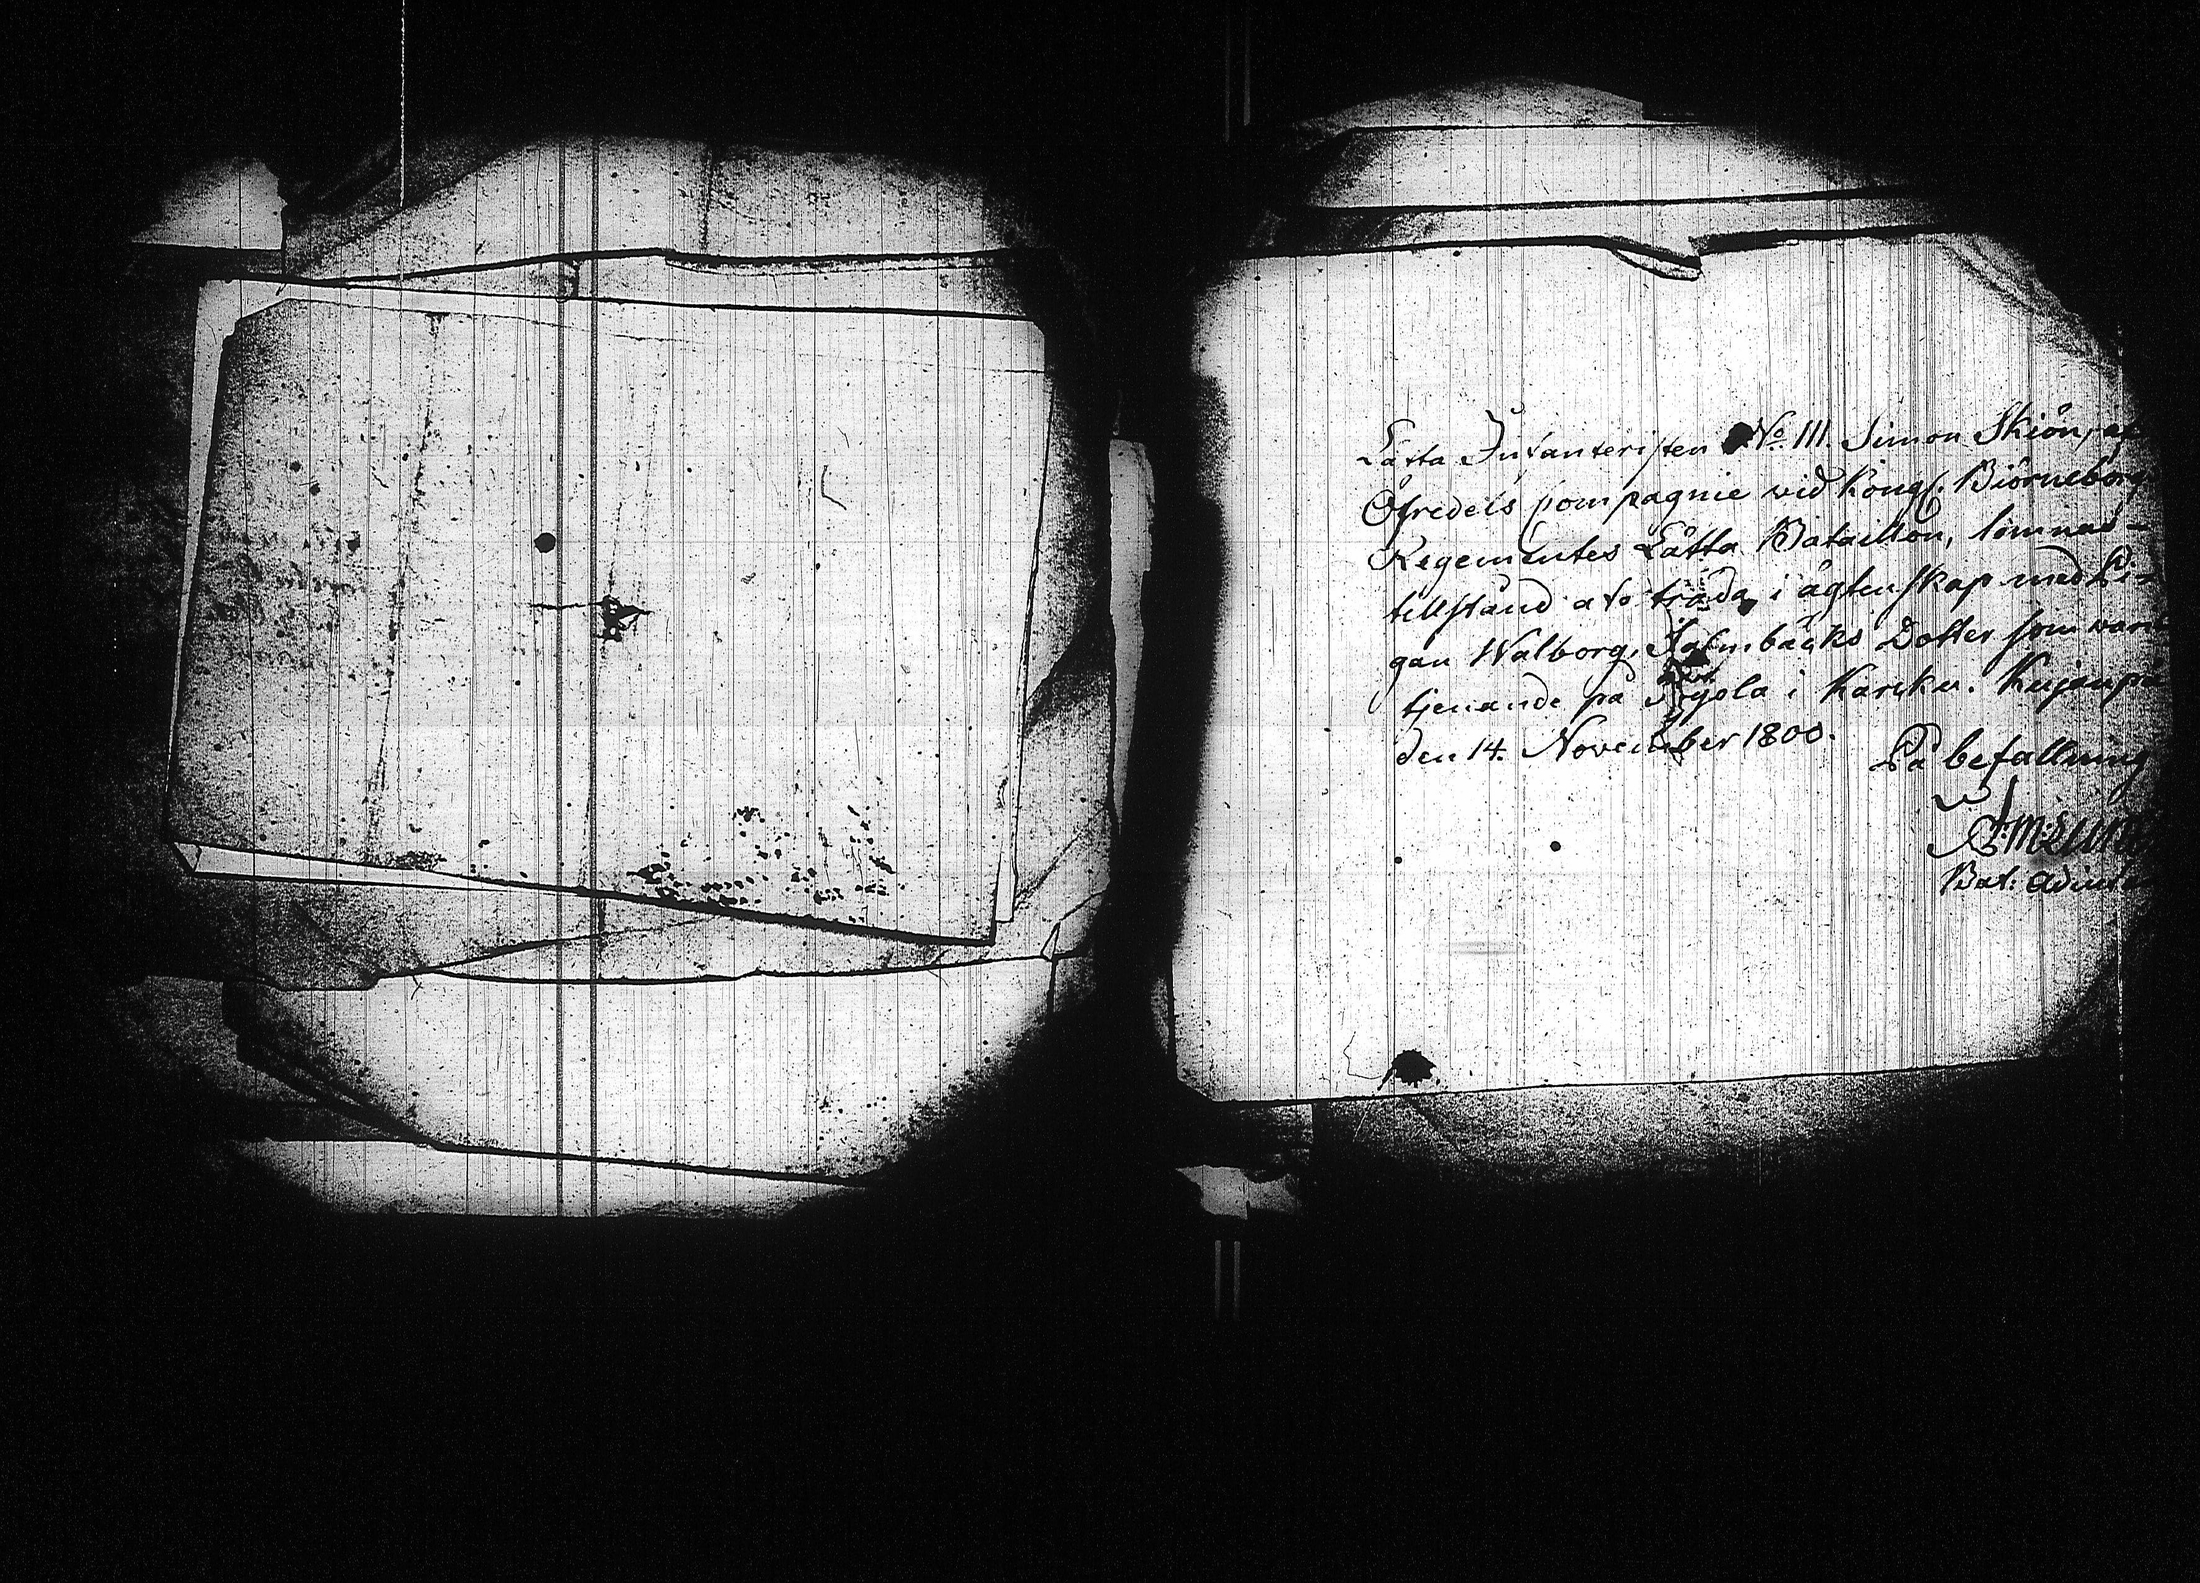 Lätta Infanteristen No. 111. Simon Skiön, af
Öfredels Compagnie wid Kongl. Biörneborgs
Regementes Lätta Bataillon, lemnas
tillstånd at träda i ägtenskap med Pi-
gan Walborg, Dotter som warit
tjenande på i Karcku.
den 14. November 1800.
På befallning
Bat: Adiutant